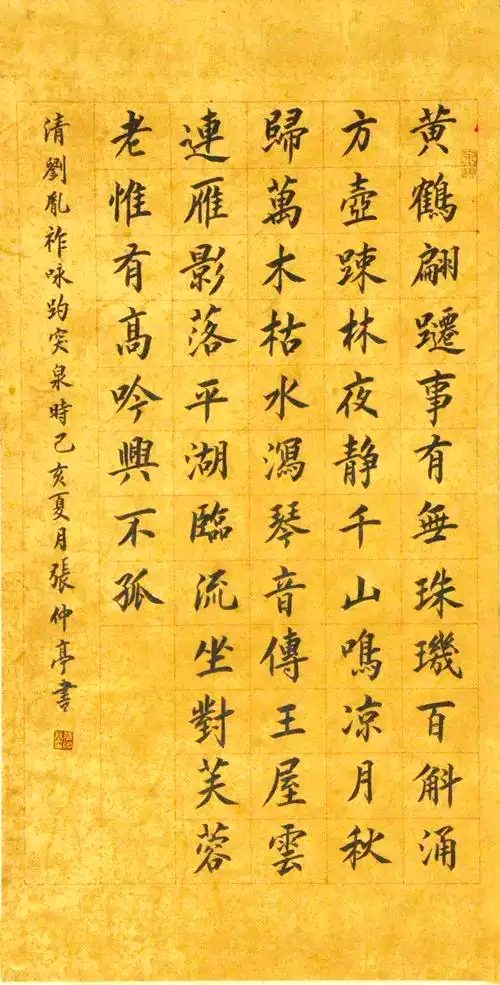 黄鶴翩躚事有無珠璣百斛涌
方壺踈林夜静千山鳴凉月秋
歸萬木枯水瀉琴音傳王屋雲
連雁影落平湖臨流坐對芙蓉
老惟有高吟興不孤
清劉胤祚咏趵突泉時己亥夏月張仲亭書